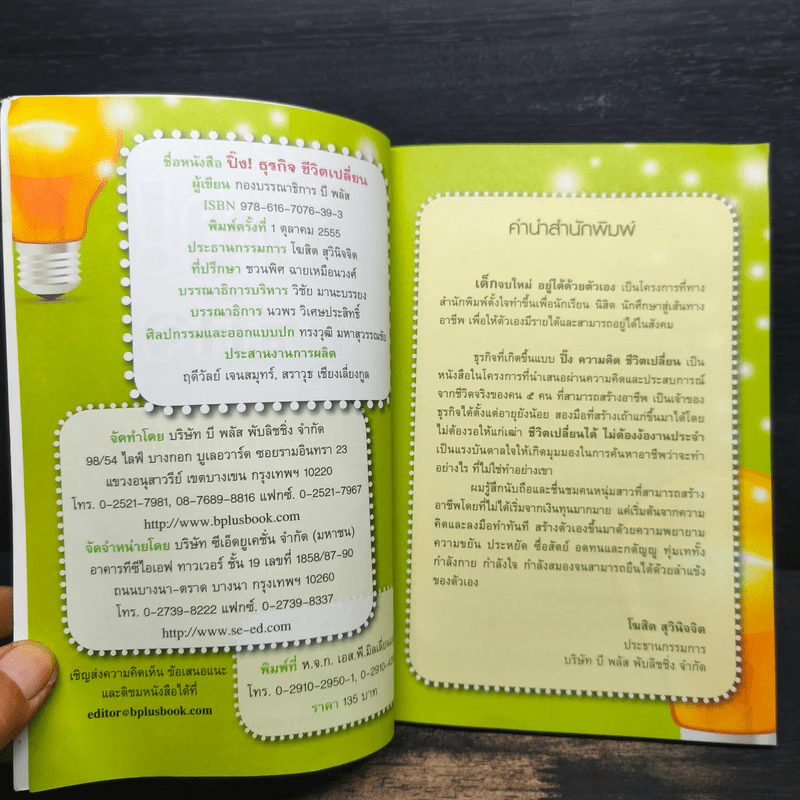 ชื่อหนังสือ ปิ๊ง! ธุรกิจ ชีวิตเปลี่ยน
ผู้เขียน กองบรรณาธิการ บี พลัส
ISBN 978-616-7076-39-3
พิมพ์ครั้งที่ 1 ตุลาคม 2555
ประธานกรรมการ โฆสิต สุวินิจจิต
ที่ปรึกษา ชวนพิศ ฉายเหมือนวงศ์
บรรณาธิการบริหาร วิชัย มานะบรรยง
บรรณาธิการ นวพร วิเศษประสิทธิ์
ศิลปกรรมและออกแบบปก ทรงวุฒิ มหาสุวรรณชัย
ประสานงานการผลิต
ฤดีวัลย์ เจนสมุทร์, สราวุธ เชียงเลี่ยงกูล
จัดทำโดย บริษัท บี พลัส พับลิชชิ่ง จำกัด
98/54 ไลฟ์ บางกอก บูเลอวาร์ด ซอยรามอินทรา 23
แขวงอนุสาวรีย์ เขตบางเขน กรุงเทพฯ 10220
โทร. 0-2521-7981, 08-7689-8816 แฟกซ์. 0-2521-7967
http://www.bplusbook.com
จัดจำหน่ายโดย บริษัท ซีเอ็ดยูเคชั่น จำกัด (มหาชน)
อาคารทีซีไอเอฟ ทาวเวอร์ ชั้น 19 เลขที่ 1858/87-90
ถนนบางนา-ตราด บางนา กรุงเทพฯ 10260
โทร. 0-2739-8222 แฟกซ์. 0-2739-8337
http://www.se-ed.com
พิมพ์ที่ ห.จ.ก. เอส.พี.มิลเลี่ยน
โทร. 0-2910-2950-1, 0-2910-
ราคา 135 บาท
เชิญส่งความคิดเห็น ข้อเสนอแนะ
และติชมหนังสือได้ที่
editor@bplusbook.com
คำนำสำนักพิมพ์
เด็กจบใหม่ อยู่ได้ด้วยตัวเอง เป็นโครงการที่ทาง
สำนักพิมพ์ตั้งใจทำขึ้นเพื่อนักเรียน นิสิต นักศึกษาสู่เส้นทาง
อาชีพ เพื่อให้ตัวเองมีรายได้และสามารถอยู่ได้ในสังคม
ธุรกิจที่เกิดขึ้นแบบ ปิ๊ง ความคิด ชีวิตเปลี่ยน เป็น
หนังสือในโครงการที่นำเสนอผ่านความคิดและประสบการณ์
จากชีวิตจริงของคน ๕ คน ที่สามารถสร้างอาชีพ เป็นเจ้าของ
ธุรกิจได้ตั้งแต่อายุยังน้อย สองมือที่สร้างเถ้าแก่ขึ้นมาได้โดย
ไม่ต้องรอให้แก่เฒ่า ชีวิตเปลี่ยนได้ ไม่ต้องง้องานประจำ
เป็นแรงบันดาลใจให้เกิดมุมมองในการค้นหาอาชีพว่าจะทำ
อย่างไร ที่ไม่ใช่ทำอย่างเขา
ผมรู้สึกนับถือและชื่นชมคนหนุ่มสาวที่สามารถสร้าง
อาชีพโดยที่ไม่ได้เริ่มจากเงินทุนมากมาย แค่เริ่มต้นจากความ
คิดและลงมือทำทันที สร้างตัวเองขึ้นมาด้วยความพยายาม
ความขยัน ประหยัด ซื่อสัตย์ อดทนและกตัญญู ทุ่มเททั้ง
กำลังกาย กำลังใจ กำลังสมองจนสามารถยืนได้ด้วยลำแข้ง
ของตัวเอง
โฆสิต สุวินิจจิต
ประธานกรรมการ
บริษัท บี พลัส พับลิชชิ่ง จำกัด